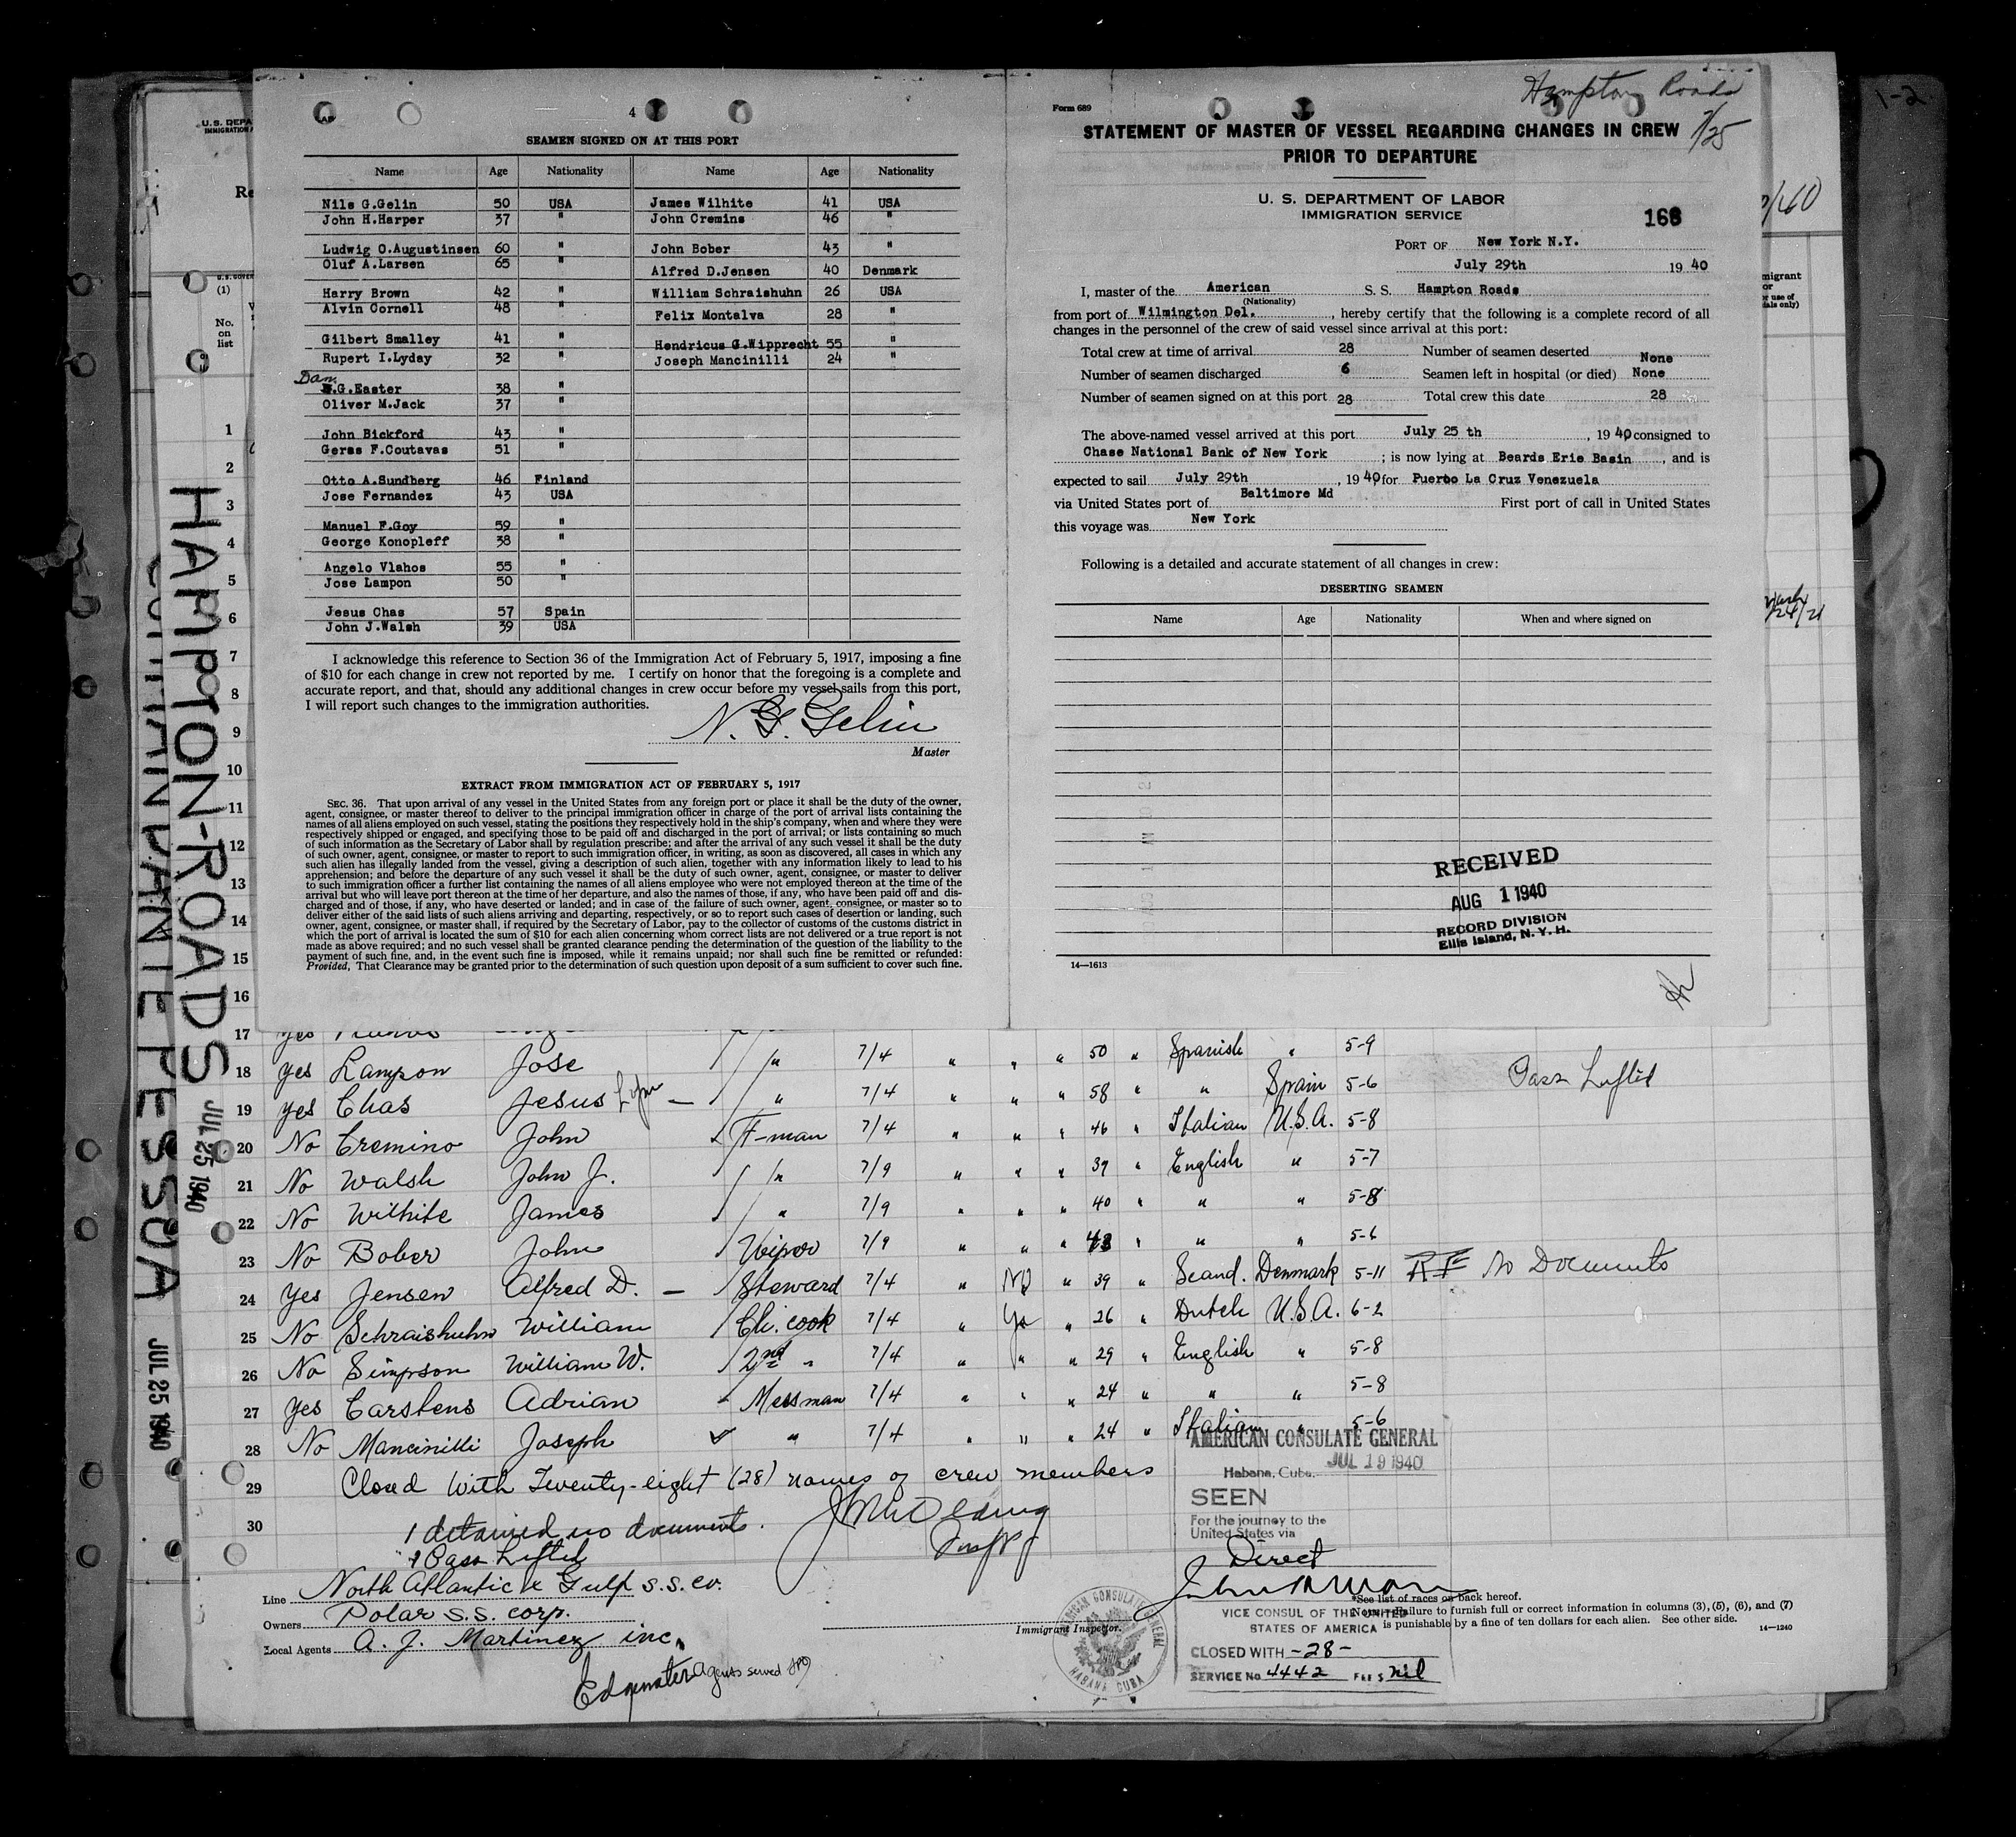 4
SEAMEN SIGNED ON AT THIS PORT
Name Age Nationality Name Age Nationality
Nils G.Gelin 50 USA James Wilhite 41 USA
John H.Harper 37 " John Cremins 46 "
Ludwig C.Augustinsen 60 " John Bober 43 "
Oluf A.Larsen 65 " Alfred D.Jensen 40 Denmark
Harry Brown 42 " William Schraishuhn 26 USA
Alvin Cornell 48 " Felix Montalva 28 "
Gilbert Smalley 41 " Hendricus G.Wipprecht 55 "
Rupert I.Lyday 32 " Joseph Mancinilli 24 "
Dan
G.Easter 38 "
Oliver M.Jack 37 "
John Bickford 43 "
Geras F.Coutavas 51 "
Otto A.Sundberg 46 Finland
Jose Fernandez 43 USA
Manuel F.Goy 59 "
George Konopleff 38 "
Angelo Vlahos 55 "
Jose Lampon 50 "
Jesus Chas 57 Spain
John J.Walsh 39 USA
I acknowledge this reference to Section 36 of the Immigration Act of February 5, 1917, imposing a fine
of $10 for each change in crew not reported by me. I certify on honor that the foregoing is a complete and
accurate report, and that, should any additional changes in crew occur before my vessel sails from this port,
I will report such changes to the immigration authorities.
N. G. Gelin
Master
EXTRACT FROM IMMIGRATION ACT OF FEBRUARY 5, 1917
SEC. 36. That upon arrival of any vessel in the United States from any foreign port or place it shall be the duty of the owner,
agent, consignee, or master thereof to deliver to the principal immigration officer in charge of the port of arrival lists containing the
names of all aliens employed on such vessel, stating the positions they respectively hold in the ship's company, when and where they were
respectively shipped or engaged, and specifying those to be paid off and discharged in the port of arrival; or lists containing so much
of such information as the Secretary of Labor shall by regulation prescribe; and after the arrival of any such vessel it shall be the duty
of such owner, agent, consignee, or master to report to such immigration officer, in writing, as soon as discovered, all cases in which any
such alien has illegally landed from the vessel, giving a description of such alien, together with any information likely to lead to his
apprehension; and before the departure of any such vessel it shall be the duty of such owner, agent, consignee, or master to deliver
to such immigration officer a further list containing the names of all aliens employee who were not employed thereon at the time of the
arrival but who will leave port thereon at the time of her departure, and also the names of those, if any, who have been paid off and dis-
charged and of those, if any, who have deserted or landed; and in case of the failure of such owner, agent, consignee, or master so to
deliver either of the said lists of such aliens arriving and departing, respectively, or so to report such cases of desertion or landing, such
owner, agent, consignee, or master shall, if required by the Secretary of Labor, pay to the collector of customs of the customs district in
which the port of arrival is located the sum of $10 for each alien concerning whom correct lists are not delivered or a true report is not
made as above required; and no such vessel shall be granted clearance pending the determination of the question of the liability to the
payment of such fine, and, in the event such fine is imposed, while it remains unpaid; nor shall such fine be remitted or refunded:
Provided, That Clearance may be granted prior to the determination of such question upon deposit of a sum sufficient to cover such fine.
Hampton Roads
7/25
Form 689
STATEMENT OF MASTER OF VESSEL REGARDING CHANGES IN CREW
PRIOR TO DEPARTURE
U. S. DEPARTMENT OF LABOR
IMMIGRATION SERVICE
168
PORT OF New York N.Y.
July 29th 19 40
I, master of the American S. S. Hampton Roads
(Nationality)
from port of Wilmington Del. , hereby certify that the following is a complete record of all
changes in the personnel of the crew of said vessel since arrival at this port:
Total crew at time of arrival 28 Number of seamen deserted None
Number of seamen discharged 6 Seamen left in hospital (or died) None
Number of seamen signed on at this port 28 Total crew this date 28
The above-named vessel arrived at this port July 25 th , 19 40 consigned to
Chase National Bank of New York ; is now lying at Beards Erie Basin , and is
expected to sail July 29th , 19 40 for Puerto La Cruz Venezuela
via United States port of Baltimore Md First port of call in United States
this voyage was New York
Following is a detailed and accurate statement of all changes in crew:
DESERTING SEAMEN
Name Age Nationality When and where signed on
RECEIVED
AUG 1 1940
RECORD DIVISION
Ellis Island, N. Y. H.
14—1613
1-2
U.S. DEPA
IMMIGRATION
Re
(1)
No. on list
HAMPTON-ROADS JUL 25 1940
PESSOA JUL 25 1940
1
2
3
4
5
6
7
8
9
10
11
12
13
14
15
16
17 yes
18 yes Lampon Jose " 7/4 " " " 50 " Spanish " 5-9
19 yes Chas Jesus — " 7/4 " " " 58 " " Spain 5-6 Pass Lifted
20 No Cremino John F-man 7/4 " " " 46 " Italian U.S.A. 5-8
21 No Walsh John J. " 7/9 " " " 39 " English " 5-7
22 No Wilhite James " 7/9 " " " 40 " " " 5-8
23 No Bober John Wiper 7/9 " " " 43 " " " 5-6
24 yes Jensen Alfred D. — Steward 7/4 " No " 39 " Scand. Denmark 5-11 No Documents
25 No Schraishuhn William Ch. cook 7/4 " Yes " 26 " Dutch U.S.A. 6-2
26 No Simpson William W. 2nd " 7/4 " " " 29 " English " 5-8
27 yes Carstens Adrian Messman 7/4 " " " 24 " " " 5-8
28 No Mancinilli Joseph " 7/4 " " " 24 " Italian " 5-6
29 Closed with Twenty-eight (28) names of crew members
30 1 detained no documents.
1 Pass Lifted
AMERICAN CONSULATE GENERAL
JUL 19 1940
Habana, Cuba.
SEEN
For the journey to the
United States via
Direct
VICE CONSUL OF THE UNITED
STATES OF AMERICA
CLOSED WITH -28-
SERVICE No. 4442 FEES nil
AMERICAN CONSULATE GENERAL HABANA CUBA
Line North Atlantic & Gulf S.S. Co.
Owners Polar S.S. Corp.
Local Agents A. J. Martinez inc.
Edgewater Agents served
Immigrant Inspector.
*See list of races on back hereof.
NOTE.—Failure to furnish full or correct information in columns (3), (5), (6), and (7)
is punishable by a fine of ten dollars for each alien. See other side.
14—1240